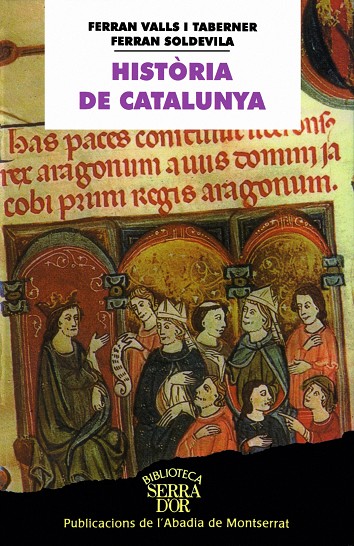 FERRAN VALLS I TABERNER
FERRAN SOLDEVILA
HISTÒRIA
DE CATALUNYA
has paces
rex aragonum auus domini ja
cobi primi regis aragonum.
BIBLIOTECA
SERRA
D'OR
Publicacions de l'Abadia de Montserrat